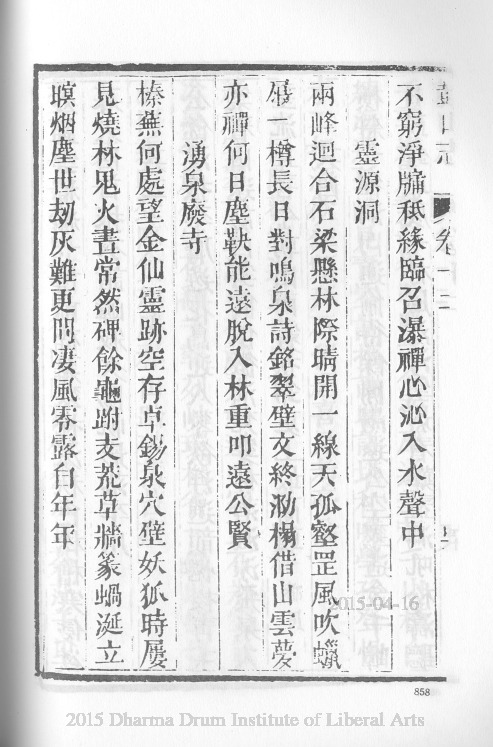 山志 卷十二
不窮淨牖秪緣臨召瀑禪心沁入水聲中
靈源洞
兩峰迴合石梁懸林際晴開一線天孤壑罡風吹蠟
屐一樽長日對鳴泉詩銘翠壁文終泐榻借山雲夢
亦禪何日塵鞅能遠脫入林重叩遠公賢
湧泉廢寺
榛蕪何處望金仙靈跡空存卓錫泉穴壁妖狐時屢
見燒林鬼火晝常然碑餘龜跗支荒草牆篆蝸涎立
暝烟塵世劫灰難更問淒風零露自年年
2015-04-16
858
2015 Dharma Drum Institute of Liberal Arts